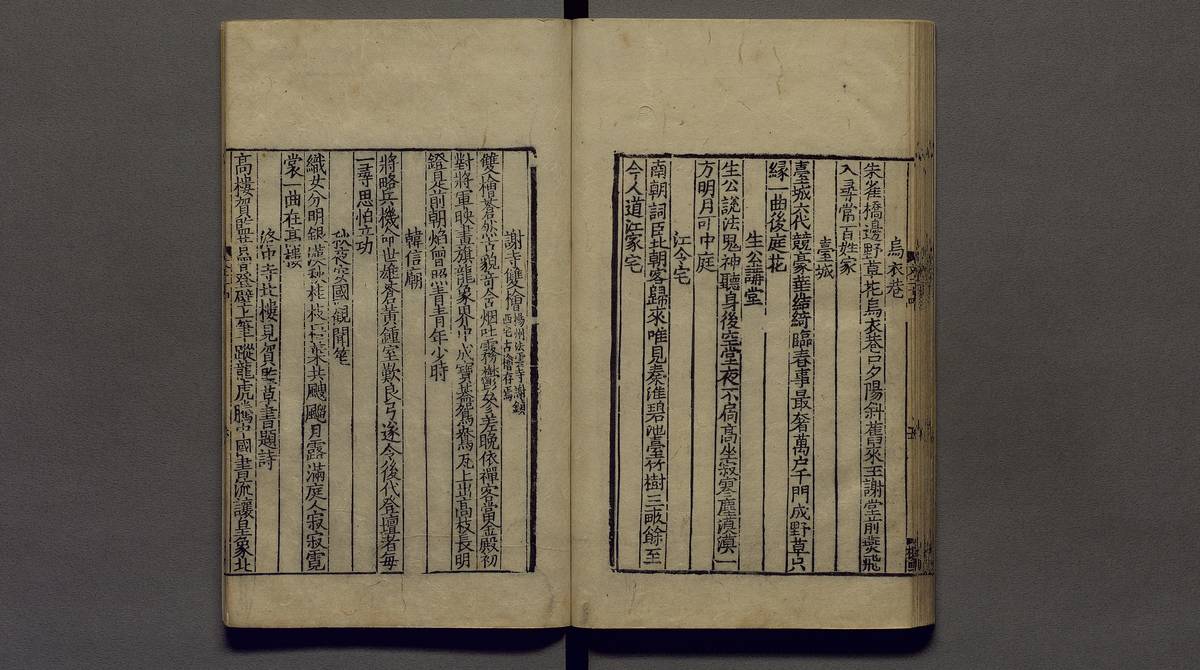 烏衣巷
朱雀橋邊野草花烏衣巷口夕陽斜舊來王謝堂前鷰飛
入尋常百姓家
臺城
臺城六代競豪華結綺臨春事最奢萬户千門成野草只
緣一曲後庭花
生公講堂
生公說法鬼神聽身後空堂夜不扃高坐寂寥塵漠漠一
方明月可中庭
江令宅
南朝詞臣北朝客歸來唯見秦淮碧池臺竹樹三畝餘至
今人道江家宅
謝寺雙檜
揚州法雲寺謝鎮
西宅古檜存焉
雙檜蒼然古貌奇含烟吐霧鬱參差晚依禪客當金殿初
對將軍映畫旗龍象界中成寶蓋鴛鴦瓦上出高枝長明
鐙是前朝焰曾照青青年少時
韓信廟
將略兵機命世雄蒼黃鍾室歎良弓遂令後代登壇者每
一尋思怕立功
秋夜安國觀聞笙
織女分明銀漢秋桂枝梧葉共颼飀月露滿庭人寂寂霓
裳一曲在高樓
洛中寺北樓見賀監草書題詩
高樓賀監昔曾登壁上筆蹤龍虎騰中國書流讓皇象北